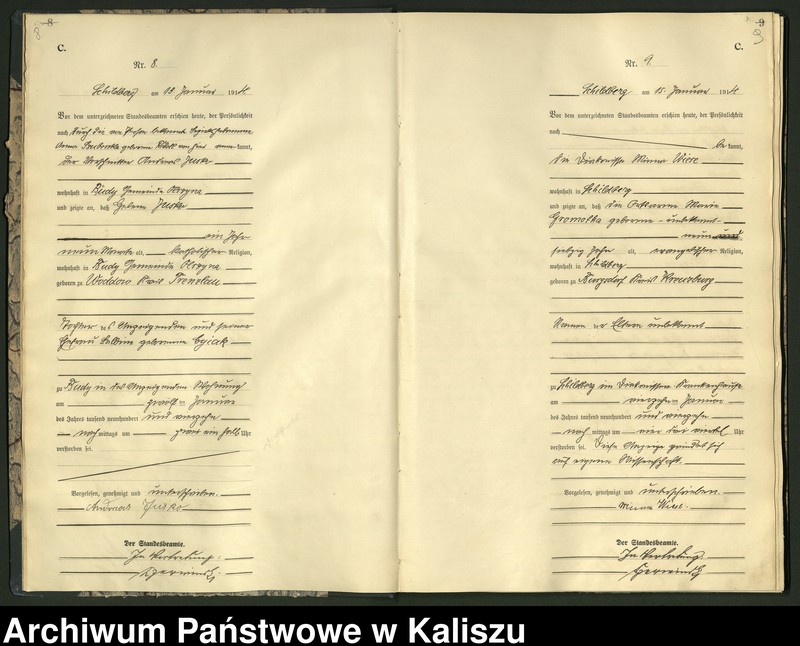 8
8
C.
Nr. 8.
Schildberg am 15. Januar 1914.
Vor dem unterzeichneten Standesbeamten erschien heute, der Persönlichkeit
nach durch die von Person bekannte
Anna geborene von hier anerkannt,
der Andreas Jusko
wohnhaft in Rudy Gemeinde
und zeigte an, daß Helene Jusko
ein Jahr
neun Monate alt, katholischer Religion,
wohnhaft in Rudy Gemeinde
geboren zu Woddow Kreis Prenzlau
Tochter des Anzeigenden und seiner
Ehefrau geborene
zu Rudy in des Anzeigenden Wohnung
am zwölften Januar
des Jahres tausend neunhundert und vierzehn
nach mittags um ein halb Uhr
verstorben sei.
Vorgelesen, genehmigt und unterschrieben.
Andreas Jusko
Der Standesbeamte.
In Vertretung.
9
9
C.
Nr. 9.
Schildberg am 15. Januar 1914.
Vor dem unterzeichneten Standesbeamten erschien heute, der Persönlichkeit
nach bekannt,
die Diakonisse Minna Wiese
wohnhaft in Schildberg
und zeigte an, daß die Ortsarme Marie
Gromotka geborene - unbekannt -
neun und
siebzig Jahre alt, evangelischer Religion,
wohnhaft in Schildberg
geboren zu Kreis Kreuzburg
Namen der Eltern unbekannt
zu Schildberg im Diakonissen Krankenhause
am vierzehnten Januar
des Jahres tausend neunhundert und vierzehn
nach mittags um vier drei viertel Uhr
verstorben sei. Diese Anzeige gründet sich
auf eigene Wissenschaft.
Vorgelesen, genehmigt und unterschrieben.
Minna Wiese.
Der Standesbeamte.
In Vertretung.
Archiwum Państwowe w Kaliszu